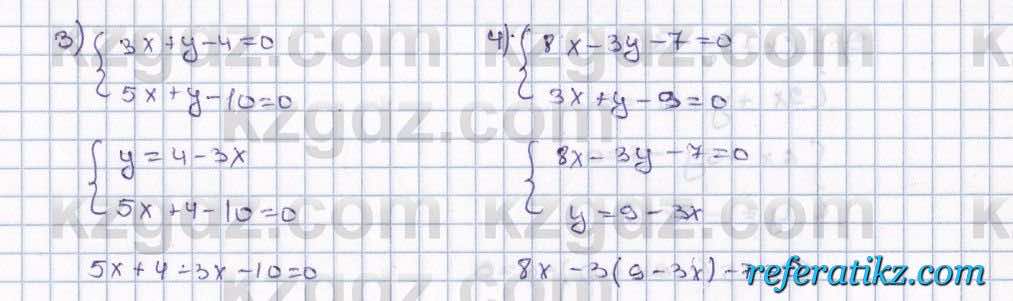 3) { 3x + y - 4 = 0
5x + y - 10 = 0
{ y = 4 - 3x
5x + y - 10 = 0
5x + 4 - 3x - 10 = 0
4) { 8x - 3y - 7 = 0
3x + y - 9 = 0
{ 8x - 3y - 7 = 0
y = 9 - 3x
8x - 3(9 - 3x) - 7
kzgdz.com
referatikz.com